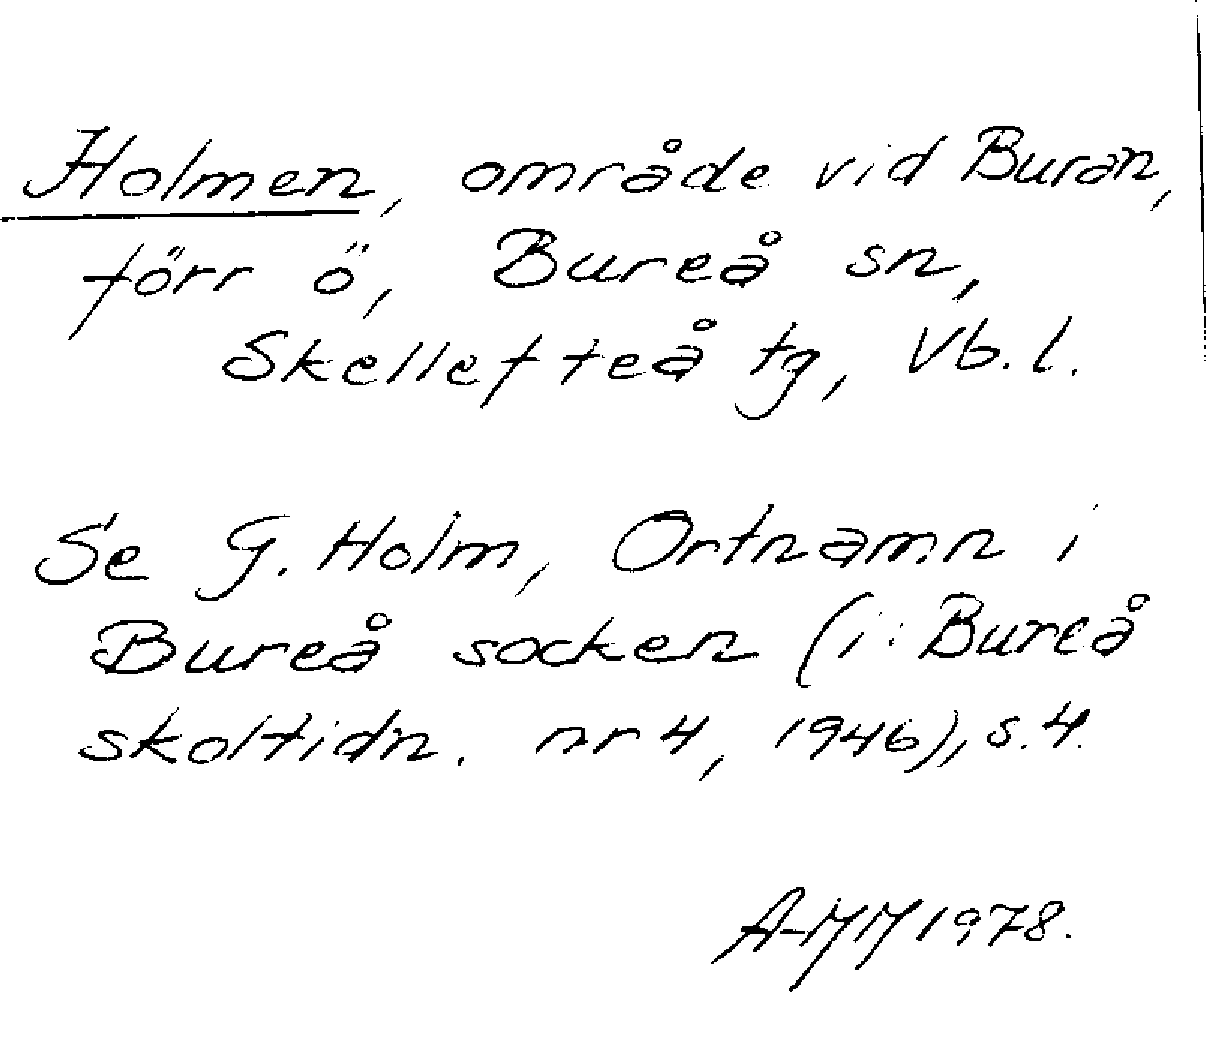 Holmen, område vid Burån,
förr ö, Bureå sn,
Skellefteå tg, Vb. l.
Se G. Holm, Ortnamn i
Bureå socken (i: Bureå
skoltidn. nr 4, 1946), s. 4.
1978.